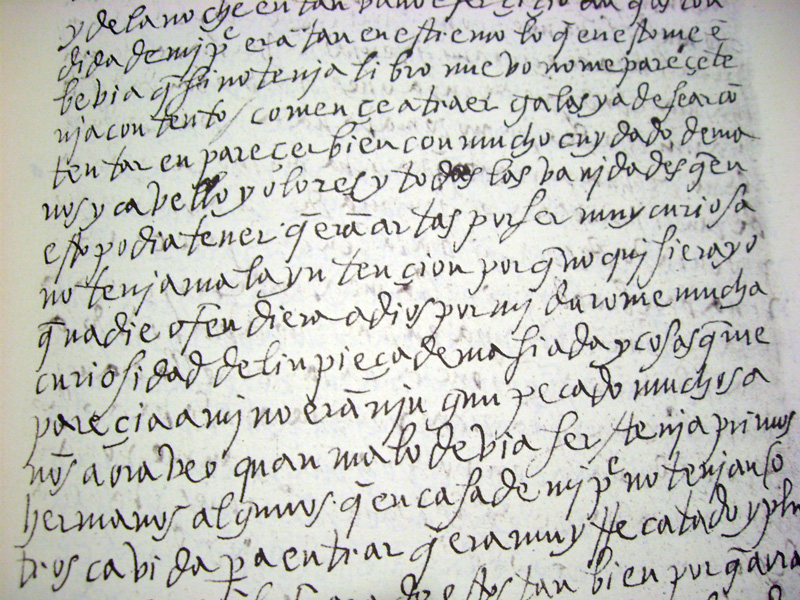 y de la noche en tan vano exerçiçio aun que escon
dida de mj p^e era tan en estremo lo q̄ en esto me ē
bevia q̄ si no tenja libro nuevo no me pareçe te
nja contento / començe a traer galas y a desear cō
tentar en pareçer bien con mucho cuydado de ma
nos y cavello y olores y todas las vanjdades q̄ en
esto podia tener q̄ erā artas por ser muy curiosa
no tenja mala yntençion por q̄ no qujsiera yo
q̄ nadie ofendiera a dios por mj durome mucha
curiosidad de linpieça demasiada y cosas q̄ me
pareçia a mj no erā njngun pecado muchos a
ños aora veo quan malo devia ser / tenja primos
hermanos algunos q̄ en casa de mj p^e no tenjan o
tros cavida pa entrar q̄ era muy recatado y plu